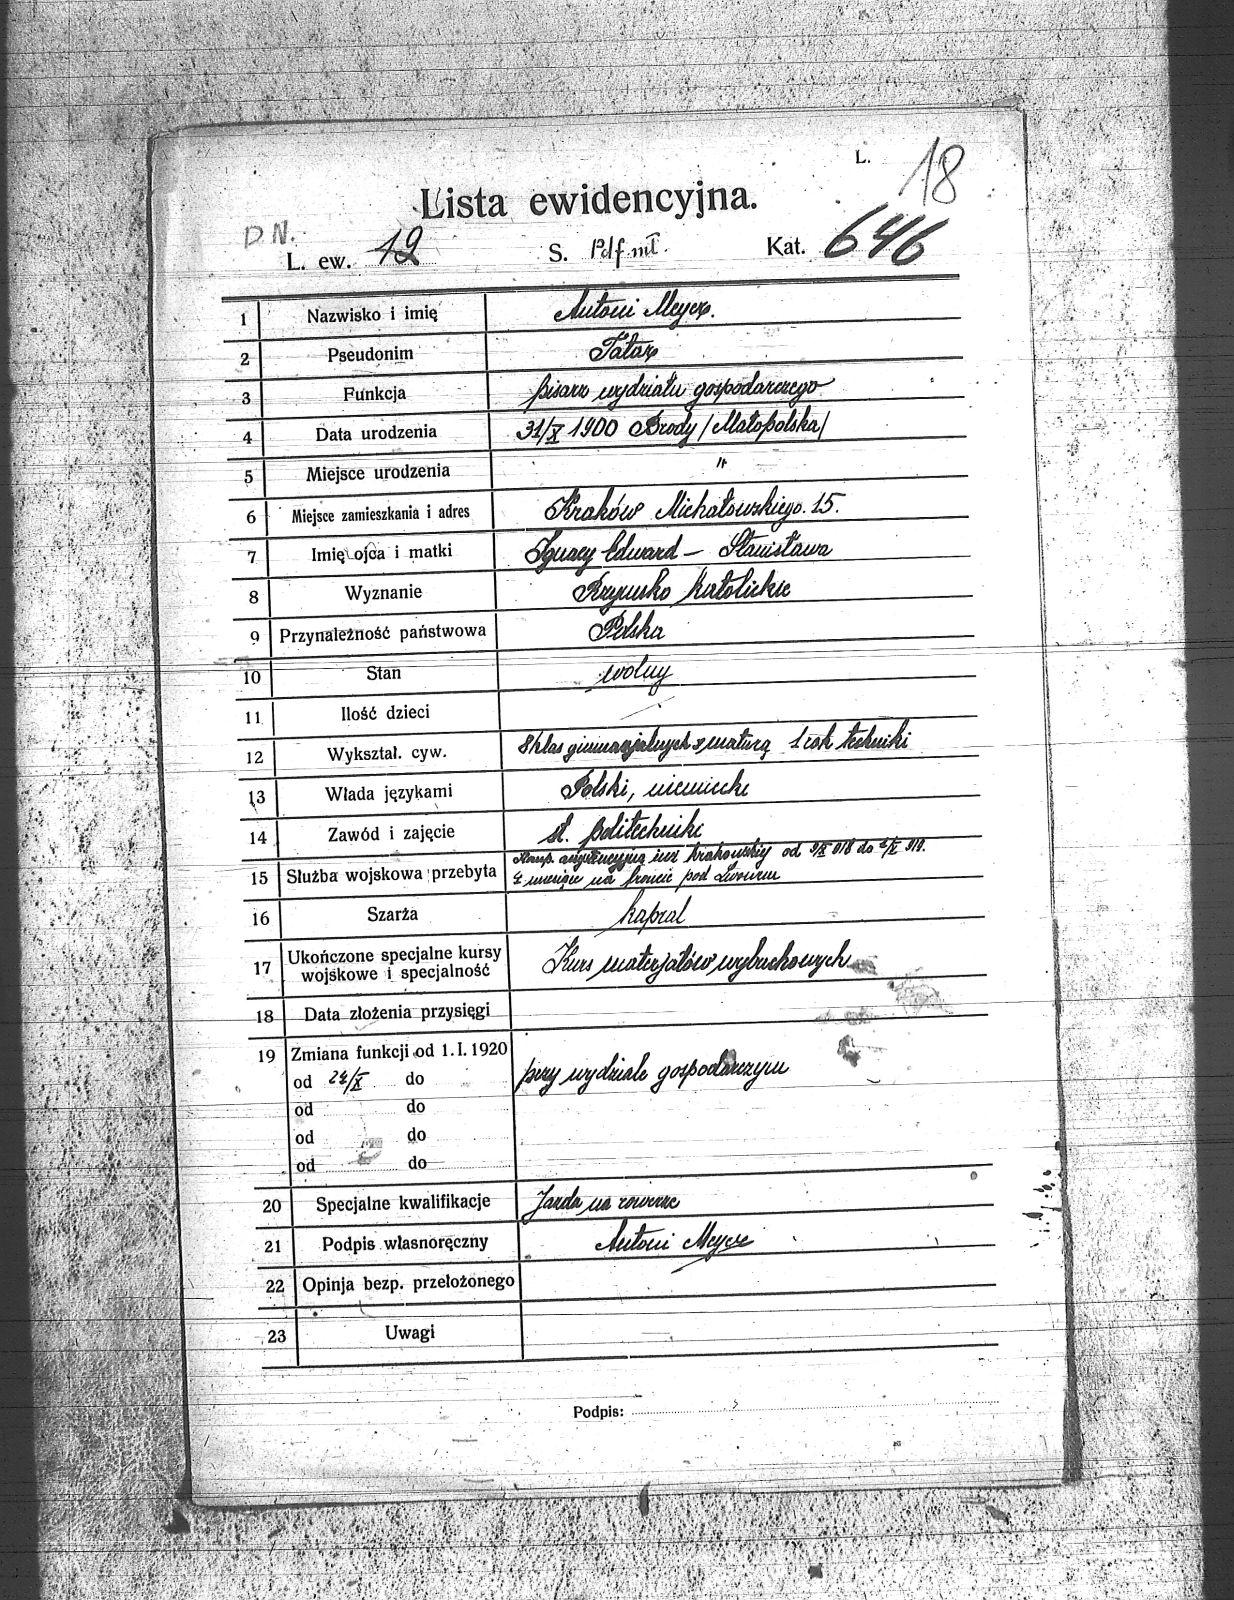 L. 18
Lista ewidencyjna.
D N.
L. ew. 12 S. Pdf. mł. Kat. 646
1 Nazwisko i imię Antoni Meyer.
2 Pseudonim Tatar
3 Funkcja pisarz wydziału gospodarczego
4 Data urodzenia 31/X 1900 Brody /Małopolska/
5 Miejsce urodzenia "
6 Miejsce zamieszkania i adres Kraków Michałowskiego. 15.
7 Imię ojca i matki Ignacy Edward – Stanisława
8 Wyznanie Rzymsko katolickie
9 Przynależność państwowa Polska
10 Stan wolny
11 Ilość dzieci
12 Wykształ. cyw. 8 klas gimnazjalnych z maturą 1 rok techniki
13 Włada językami Polski, niemiecki
14 Zawód i zajęcie sł. politechniki
15 Służba wojskowa przebyta Komp. asystencyjna inż. krakowskiej od
4 miesiące na froncie pod Lwowem
16 Szarża kapral
17 Ukończone specjalne kursy wojskowe i specjalność Kurs materjałów wybuchowych
18 Data złożenia przysięgi
19 Zmiana funkcji od 1. I. 1920
od 24/X do przy wydziale gospodarczym
od do
od do
od do
20 Specjalne kwalifikacje Jazda na rowerze
21 Podpis własnoręczny Antoni Meyer
22 Opinja bezp. przełożonego
23 Uwagi
Podpis: